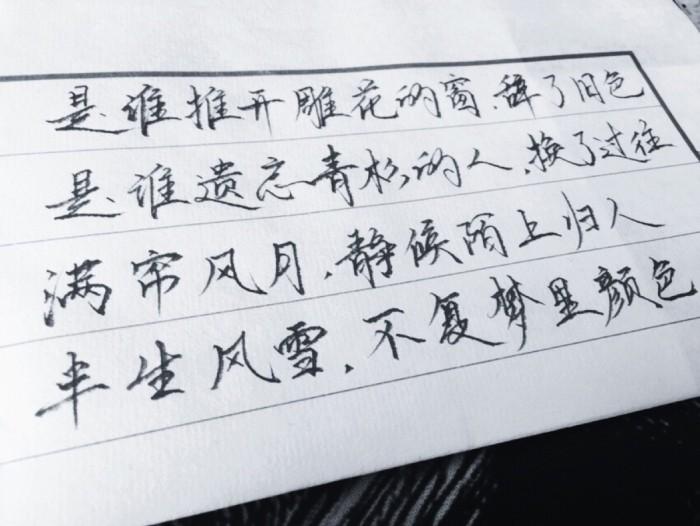 是谁推开雕花的窗、辞了旧色
是谁遗忘青衫的人，换了过往
满帘风月，静候陌上归人
半生风雪，不复梦里颜色